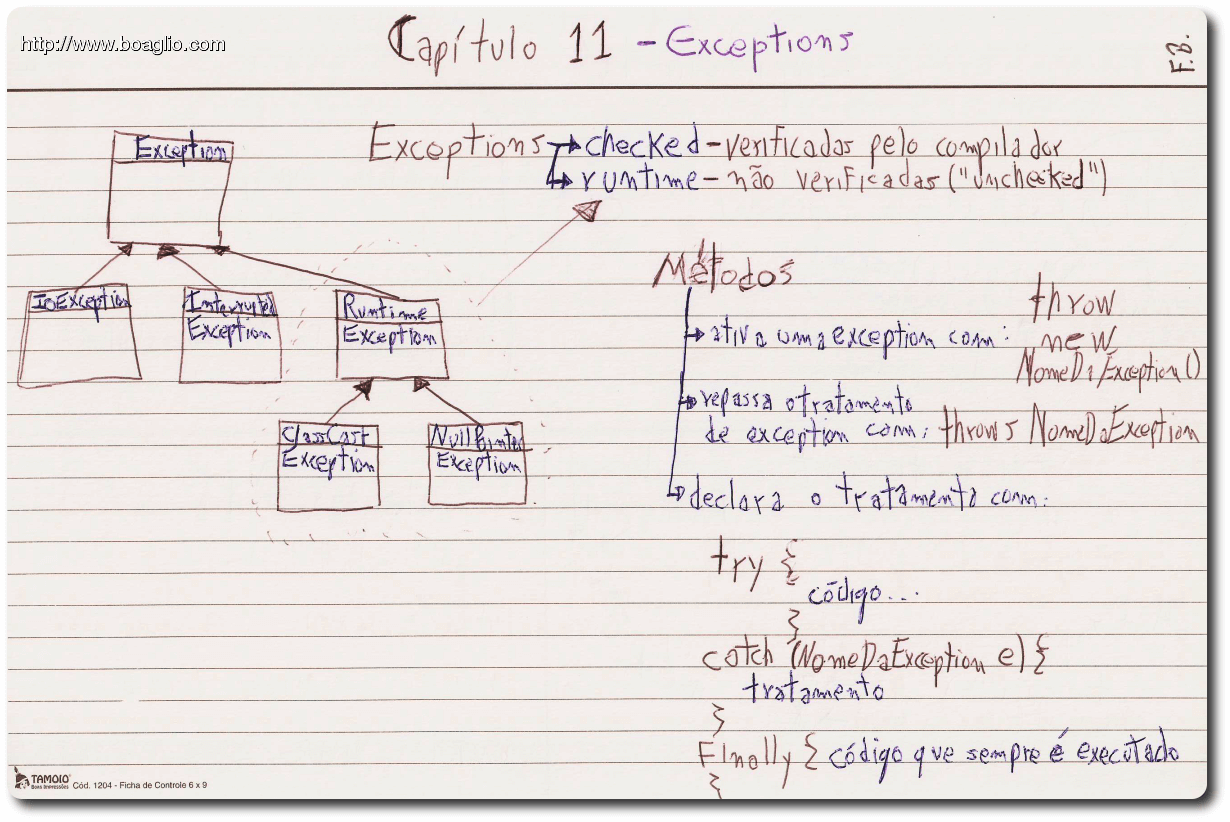 http://www.boaglio.com
Capítulo 11 - Exceptions
F.B.
Exception
IOException
Interrupted
Exception
Runtime
Exception
ClassCast
Exception
NullPointer
Exception
Exceptions → checked - verificadas pelo compilador
→ runtime - não verificadas ("unchecked")
Métodos
→ ativa uma exception com: throw
new
NomeDaException()
→ repassa o tratamento
de exception com: throws NomeDaException
→ declara o tratamento com:
try {
código...
}
catch (NomeDaException e) {
tratamento
}
Finally { código que sempre é executado
}
TAMOIO
Boas Impressões
Cód. 1204 - Ficha de Controle 6 x 9